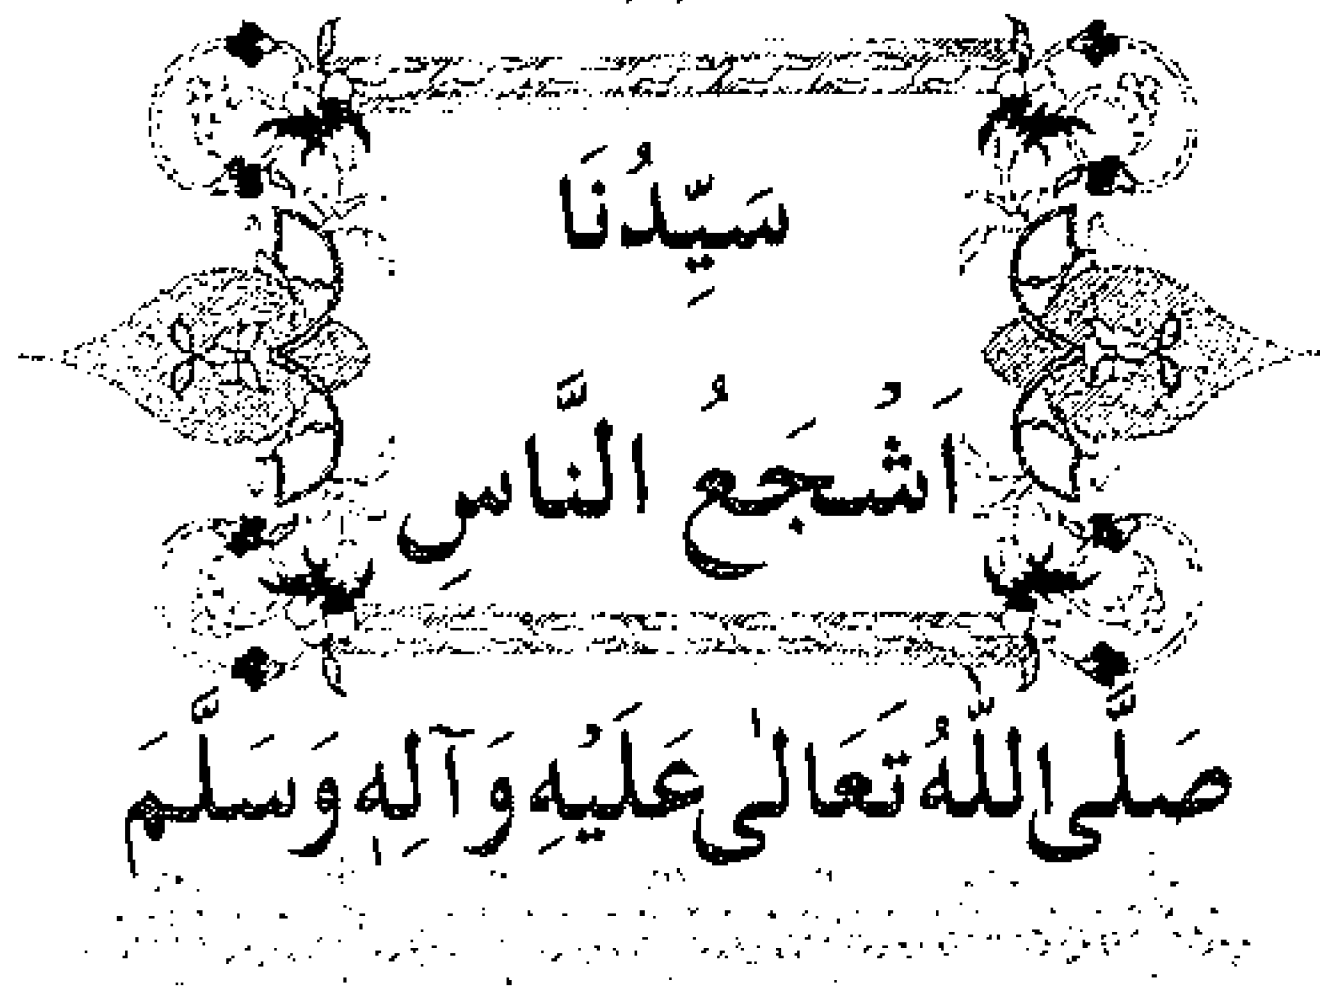 سَيِّدُنَا
اَشْجَعُ النَّاسِ
صَلَّى اللّٰهُ تَعَالٰى عَلَيْهِ وَآلِهٖ وَسَلَّمَ